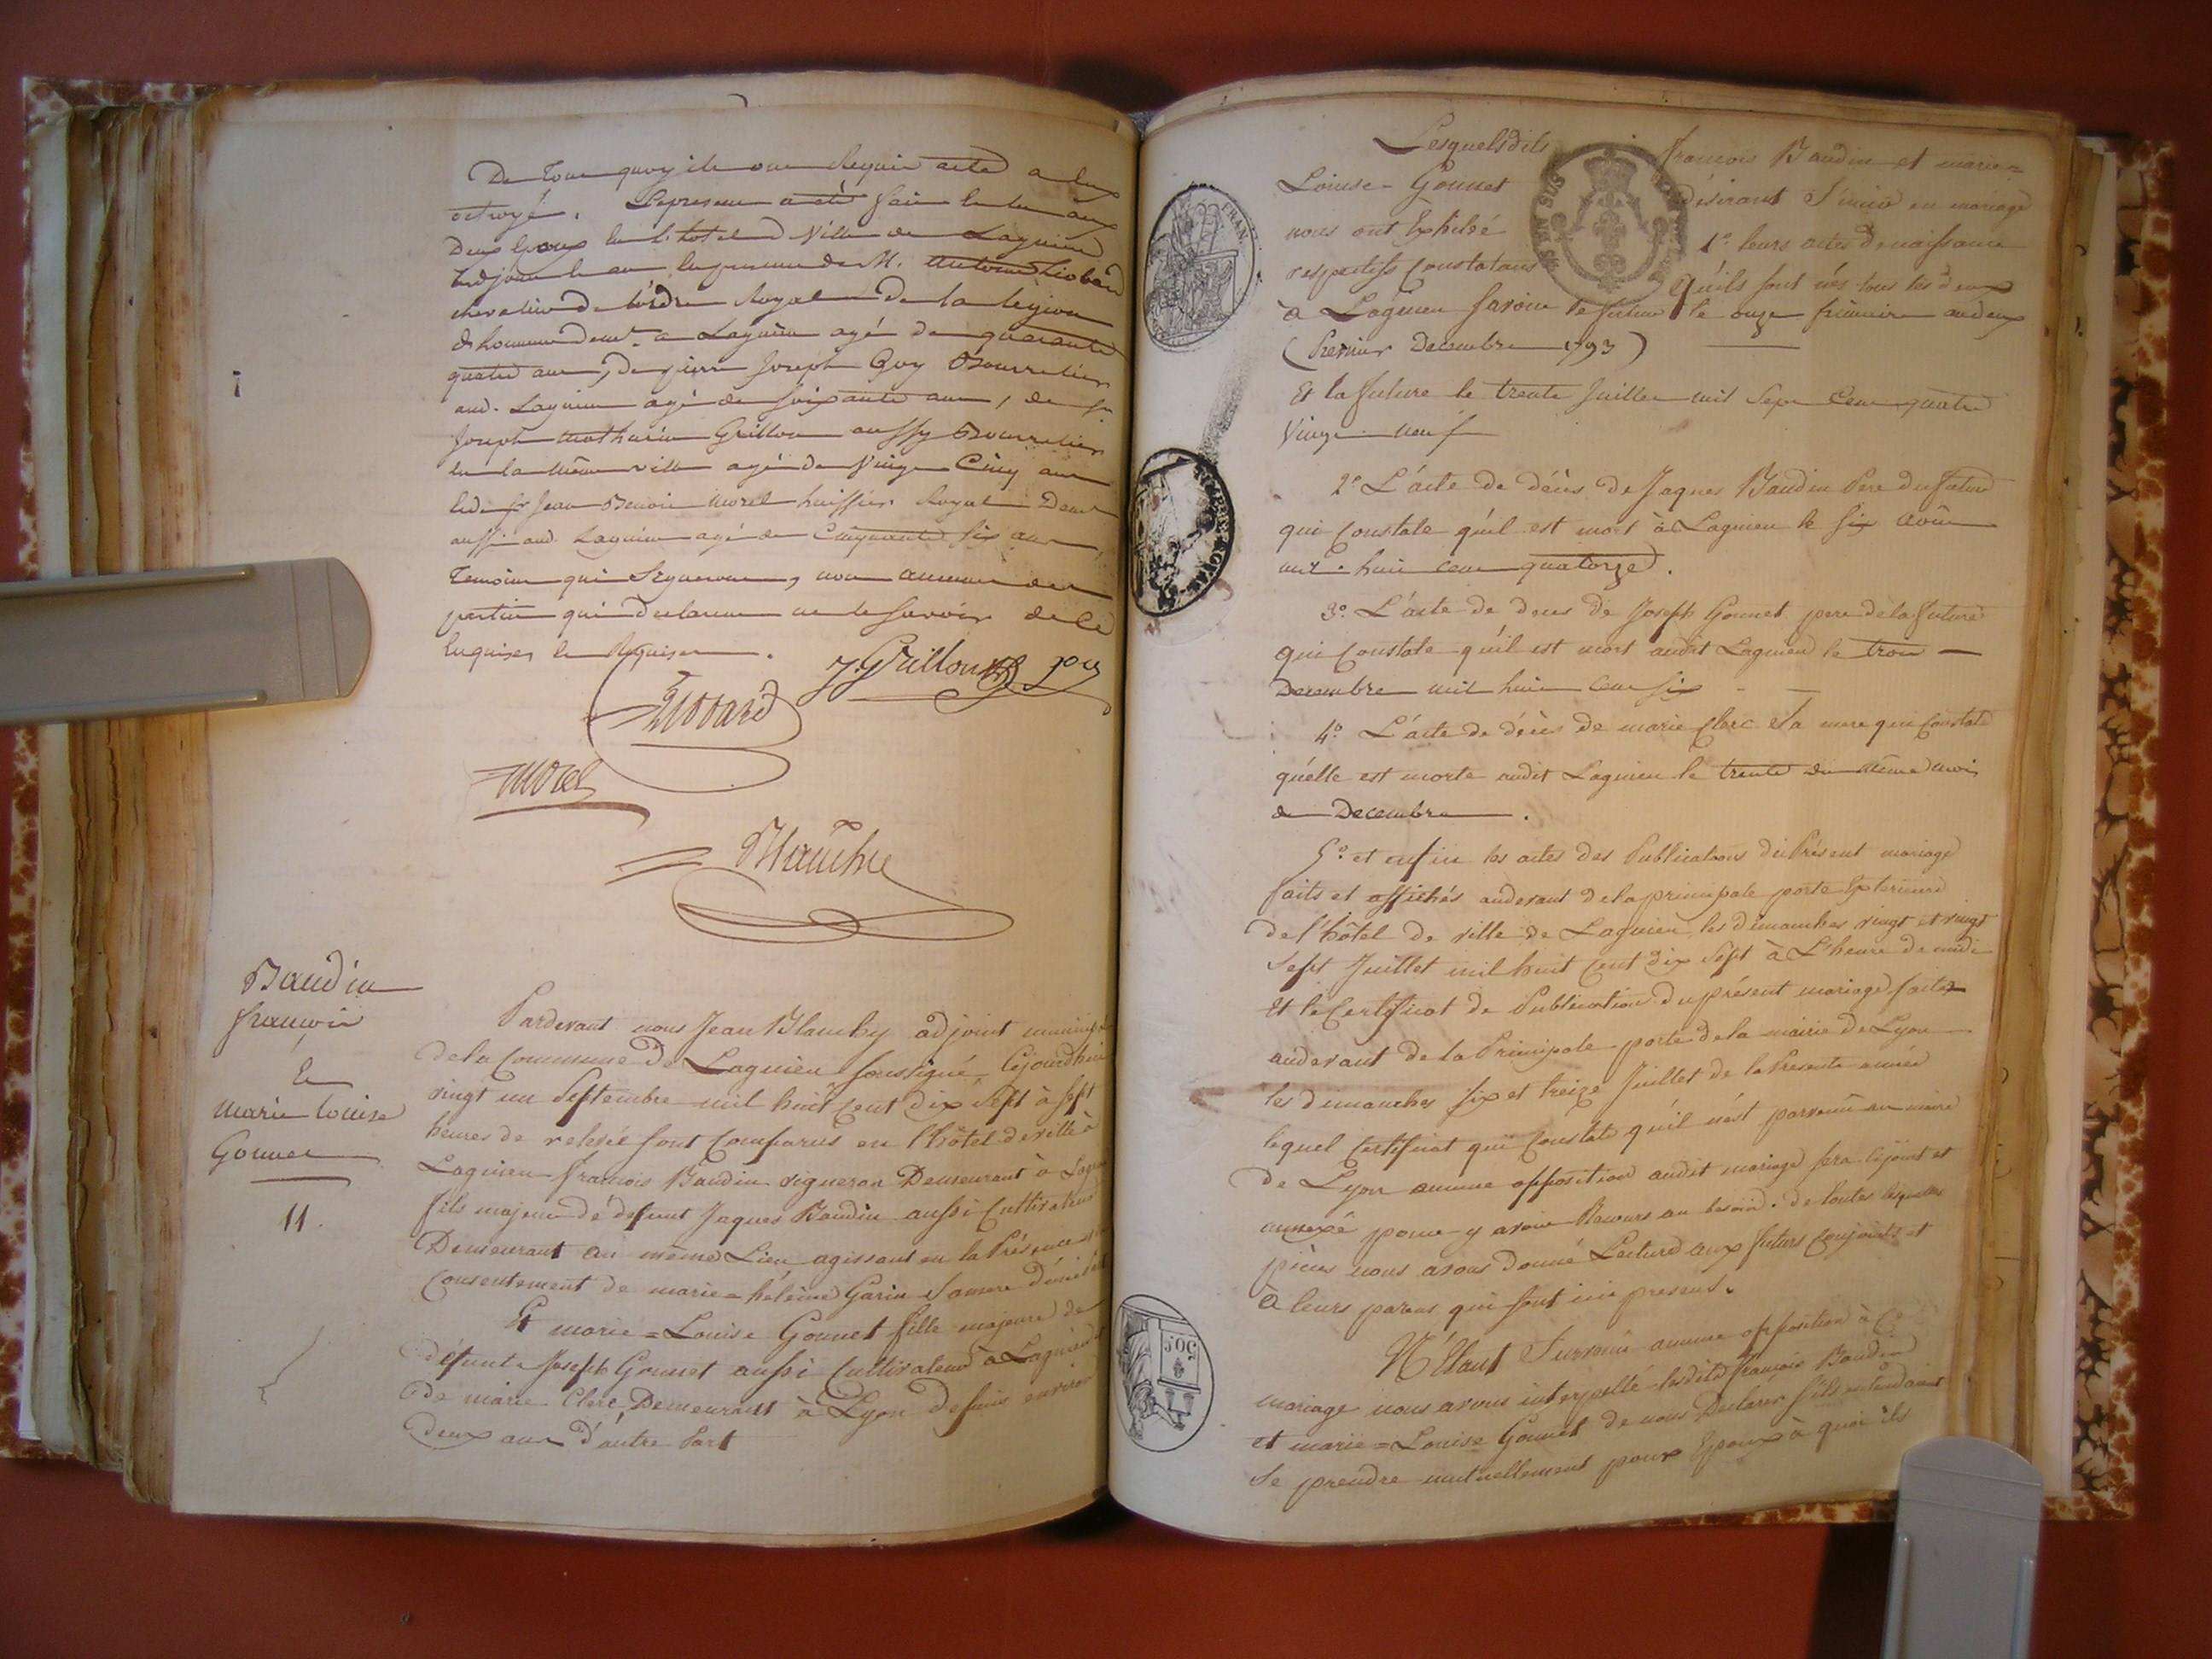 De tout quoy ils ont Requis acte a eux
octroyé. Le present a été fait lu aux
Deux Epoux en l'hotel de Ville de Lagnieu
led jour et an en presence de M. Antoine Liobard
chevalier de l'ordre Royal de la legion
d'honneur demt a Lagnieu agé de quarante
quatre ans, de pierre Joseph Guy Bourrelier
aud. Lagnieu agé de soixante ans, de sr
Joseph Mathurin Grillon aussy Bourrelier
en la même ville agé de Vingt Cinq ans
et de sr Jean Benoit Morel huissier Royal Demt
aussi aud. Lagnieu agé de Cinquante six ans,
Temoins qui Signeront, non aucune des
parties qui declarent ne le savoir de ce
Enquises et Requises.
J. Grillon Guy
Liobard
Morel
Blanchy
Baudin
françois
Et
marie louise
Gonnet
11.
Pardevant nous Jean Blanchy adjoint municipal
de la Commune de Lagnieu soussigné, Cejourdhui
vingt un Septembre mil huit cent dix Sept à sept
heures de relevée sont Comparus en l'hôtel de ville à
Lagnieu françois Baudin vigneron Demeurant à
fils majeur de défunt Jaques Baudin aussi Cultivateur
Demeurant au même Lieu agissant en la Présence
Consentement de marie=heleine Garin Sa mere d'une part
Et marie=Louise Gonnet fille majeure de
défunts Joseph Gonnet aussi Cultivateur à Lagnieu et
de marie Clerc, Demeurant à Lyon depuis environ
Deux ans d'autre Part
Lesquels dits françois Baudin et marie=
Louise=Gonnet désirant S'unir en mariage
nous ont Exhibé 1º leurs actes de naissance
respectifs Constatans Qu'ils sont nés tous les deux
à Lagnieu savoir le futur le onze frimaire an deux
(Premier Decembre 1793)
Et la future le trente Juillet mil Sept Cent quatre
Vingt neuf
2º L'acte de décès de Jaques Baudin Pere du futur
qui Constate qu'il est mort à Lagnieu le six août
mil huit cent quatorze.
3º L'acte de deces de Joseph Gonnet pere de la future
qui Constate qu'il est mort audit Lagnieu le trois
Decembre mil huit cent six
4º L'acte de décès de marie Clerc Sa mere qui Constate
qu'elle est morte audit Lagnieu le trente du même mois
de Decembre.
5º et enfin les actes des Publications du Présent mariage
faits et affichés audevant de la principale porte Exterieure
de l'hôtel de ville de Lagnieu, les dimanches vingt et vingt
Sept Juillet mil huit Cent dix Sept à L'heure de midi
Et le Certificat de Publication du présent mariage faites
audevant de la Principale porte de la mairie de Lyon
les dimanches six et treize Juillet de la Présente année
lequel Certificat qui Constate qu'il n'est parvenu au maire
de Lyon aucune opposition audit mariage sera Cijoint et
annexé pour y avoir Recours au besoin. de toutes lesquelles
pièces nous avons donné Lecture aux futurs Conjoints et
à leurs parens qui sont ici presens.
N'Etant Survenu aucune opposition à Ce
mariage nous avons interpellé lesdits françois Baudin
et marie=Louise Gonnet de nous Declarer s'ils entendaient
se prendre mutuellement pour Epoux à quoi ils
FRAN.
50C